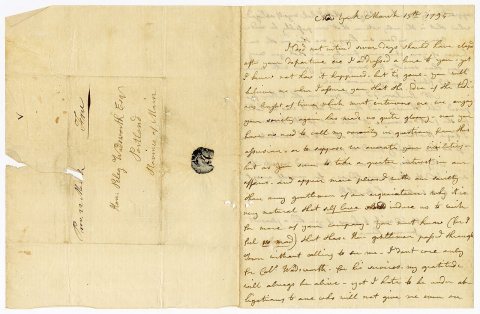 New York March 15th 1795
I did not intend seven days should have elaps
after your departure ere I address'd a line to you - yet
I know not how it happened, but to yours - you will
believe me when I assure you that the idea of the
bright of times which must intervene ere we enjoy
your society again has made us quite gloomy - nor you
have no need to call my veracity in question from this
assurance, or to suppose we overate your civilities -
but as you seem to take a greater interest in our
affairs - and appear more pleased with our society -
than any gentleman of our acquaintance why it is
very natural that self love should induce us to wish
for more of your company. You must know (for I
feel so mad) that those gentlemen pass'd through
Town without calling to see me. I don't care only
for Col. Wadsworth - for his services, my gratitude
will always be alive - yet I hate to be under ob-
ligations to one who will not give me even an
Hon. Peleg Wadsworth Esqr
Portland
Province of Maine
Free